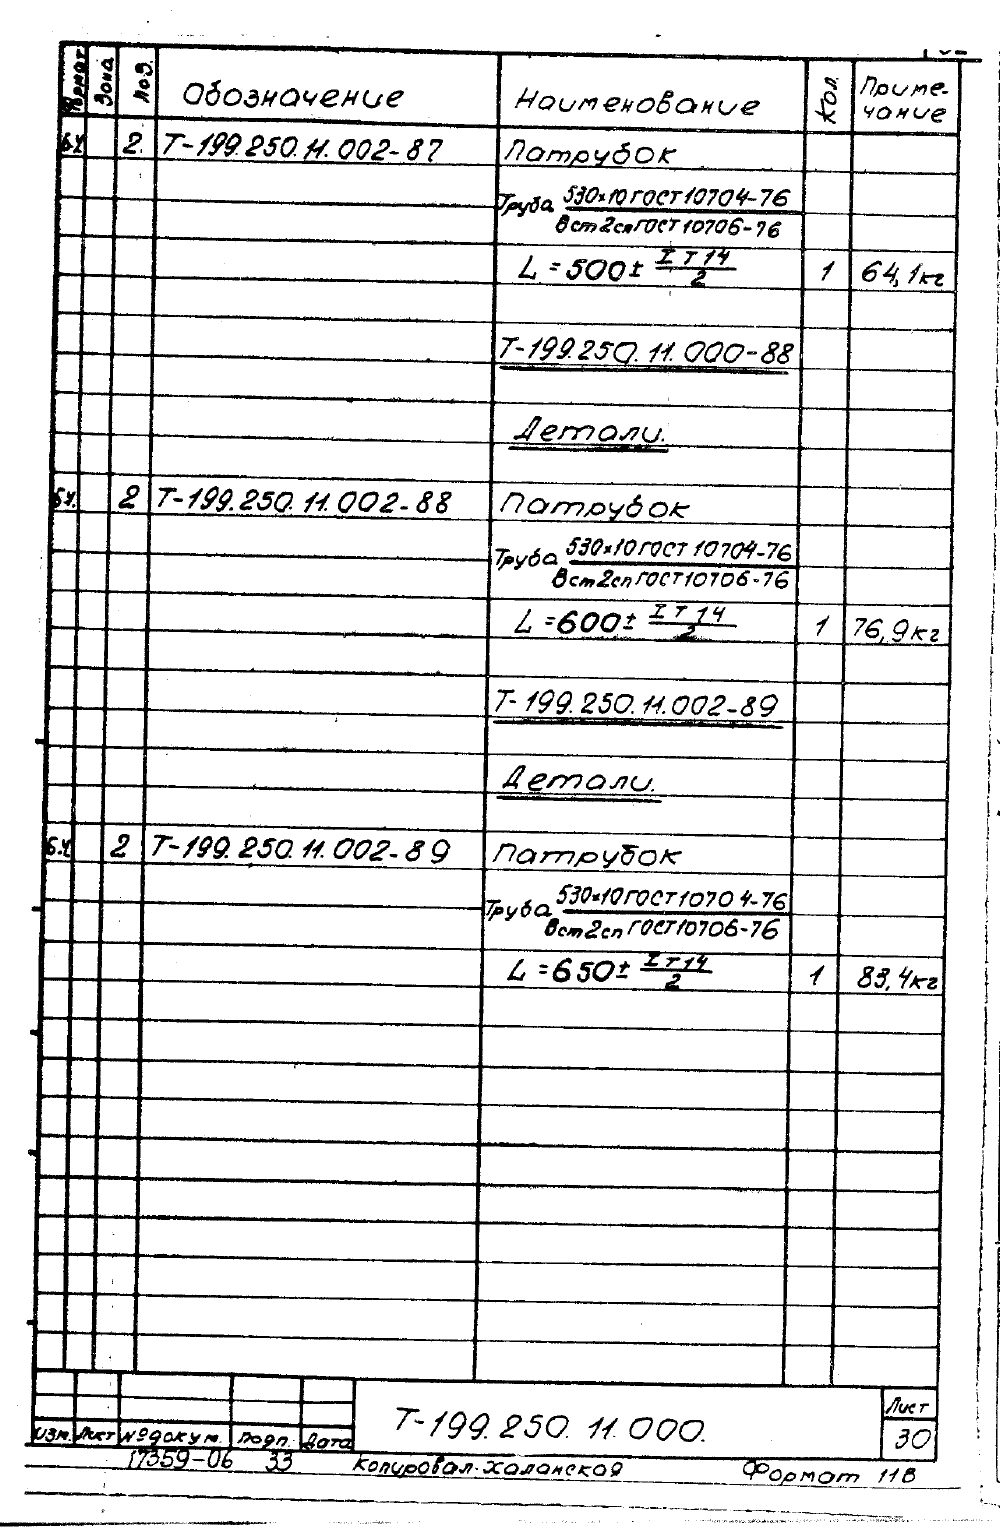 Формат Зона Поз. Обозначение Наименование Кол. Приме-
чание
БЧ 2. Т-199.250.11.002-87 Патрубок
Труба 530×10 ГОСТ 10704-76
Вст2сп ГОСТ 10706-76
L=500± IT14
2 1 64,1кг
Т-199.250.11.000-88
Детали.
БЧ. 2 Т-199.250.11.002-88 Патрубок
Труба 530×10 ГОСТ 10704-76
Вст2сп ГОСТ 10706-76
L=600± IT14
2 1 76,9кг
Т-199.250.11.002-89
Детали.
Б.Ч. 2 Т-199.250.11.002-89 Патрубок
Труба 530×10 ГОСТ 10704-76
Вст2сп ГОСТ 10706-76
L=650± IT14
2 1 83,4кг
Т-199.250.11.000. Лист
30
Изм. Лист №докум. Подп. Дата
17359-06 33 Копировал. Халанская Формат 11В